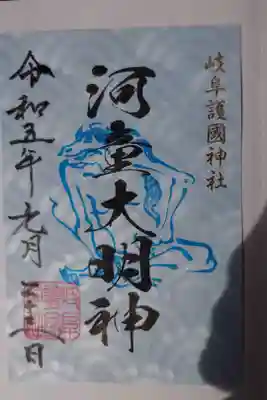 岐阜護國神社
河童大明神
令和五年九月 日